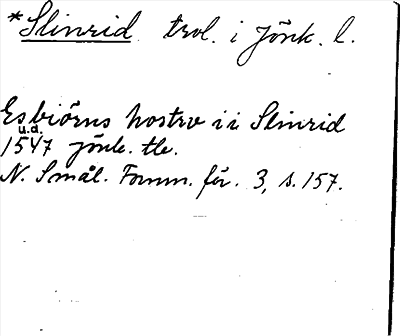 *Slinrid trol. i Jönk. l.
Esbiörns hostrv ii Slinrid
u.d.
1547 jönk. tle.
N. Smål. Fornm. för. 3, s. 157.